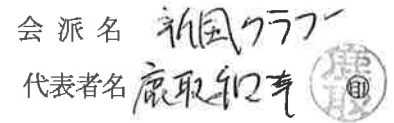 会派名 新風クラブ
代表者名 鹿取和幸 鹿取 印